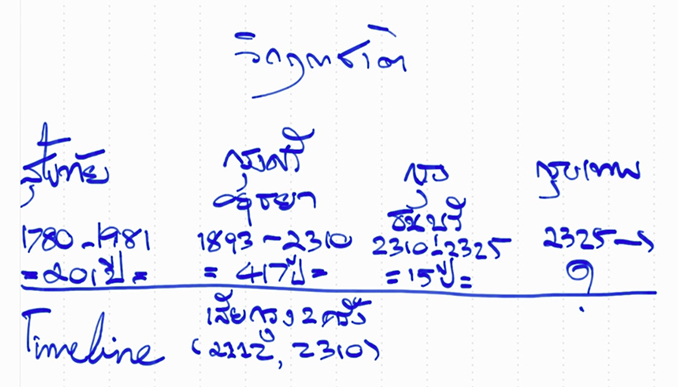 วิกฤตชาติ
สุโขทัย
1780-1981
=201ปี=
กรุงศรี
อยุธยา
1893-2310
= 417ปี=
กรุง
ธนบุรี
2310-2325
=15ปี=
กรุงเทพ
2325→
?
Timeline
เสียกรุง 2 ครั้ง
(2112, 2310)